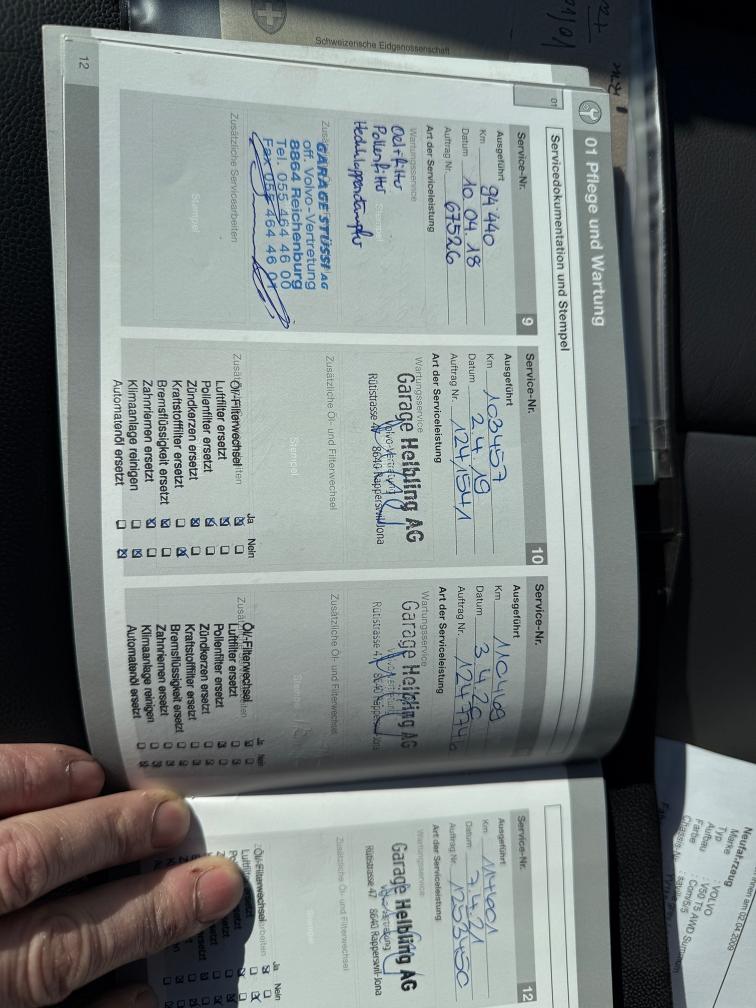 Schweizerische Eidgenossenschaft
12
01 Pflege und Wartung
01
Servicedokumentation und Stempel
Service-Nr. 9
Ausgeführt
Km 94 440
Datum 10 04 18
Auftrag Nr. 67526
Art der Serviceleistung
Wartungsservice
Oel+filter
Pollenfilter
Stempel
Zusä
GARAGE STÜSSI AG
off. Volvo-Vertretung
8864 Reichenburg
Tel. 055 464 46 00
Fax 055 464 46 01
Zusätzliche Servicearbeiten
Stempel
Service-Nr. 10
Ausgeführt
Km 103457
Datum 2.4.19
Auftrag Nr. 124,154,1
Art der Serviceleistung
Wartungsservice
Garage Helbling AG
Volvo-Vertretung
Rütistrasse 47 8640 Rapperswil-Jona
Zusätzliche Öl- und Filterwechsel
Stempel
Ja Nein
Öl-/Filterwechsel
Luftfilter ersetzt
Pollenfilter ersetzt
Zündkerzen ersetzt
Kraftstofffilter ersetzt
Bremsflüssigkeit ersetzt
Zahnriemen ersetzt
Klimaanlage reinigen
Automatenöl ersetzt
Service-Nr.
Ausgeführt
Km 110409
Datum 3.4.20
Auftrag Nr.
Art der Serviceleistung
Wartungsservice
Garage Helbling AG
Rütistrasse 47 8640 Rapperswil-Jona
Zusätzliche Öl- und Filterwechsel
Ja Nein
Öl-/Filterwechsel
Luftfilter ersetzt
Pollenfilter ersetzt
Zündkerzen ersetzt
Kraftstofffilter ersetzt
Bremsflüssigkeit ersetzt
Zahnriemen ersetzt
Klimaanlage reinigen
Automatenöl ersetzt
Service-Nr. 12
Ausgeführt
Km 117601
Datum 7.4.21
Auftrag Nr. 1253450
Art der Serviceleistung
Wartungsservice
Garage Helbling AG
Volvo-Vertretung
Rütistrasse 47 8640 Rapperswil-Jona
Zusätzliche Öl- und Filterwechsel
Ja Nein
Öl-/Filterwechsel
am 02.04.2009
Neufahrzeug
Marke : VOLVO
Typ : V50 T5 AWD Summum
Aufbau
Farbe
Chassis-Nr.